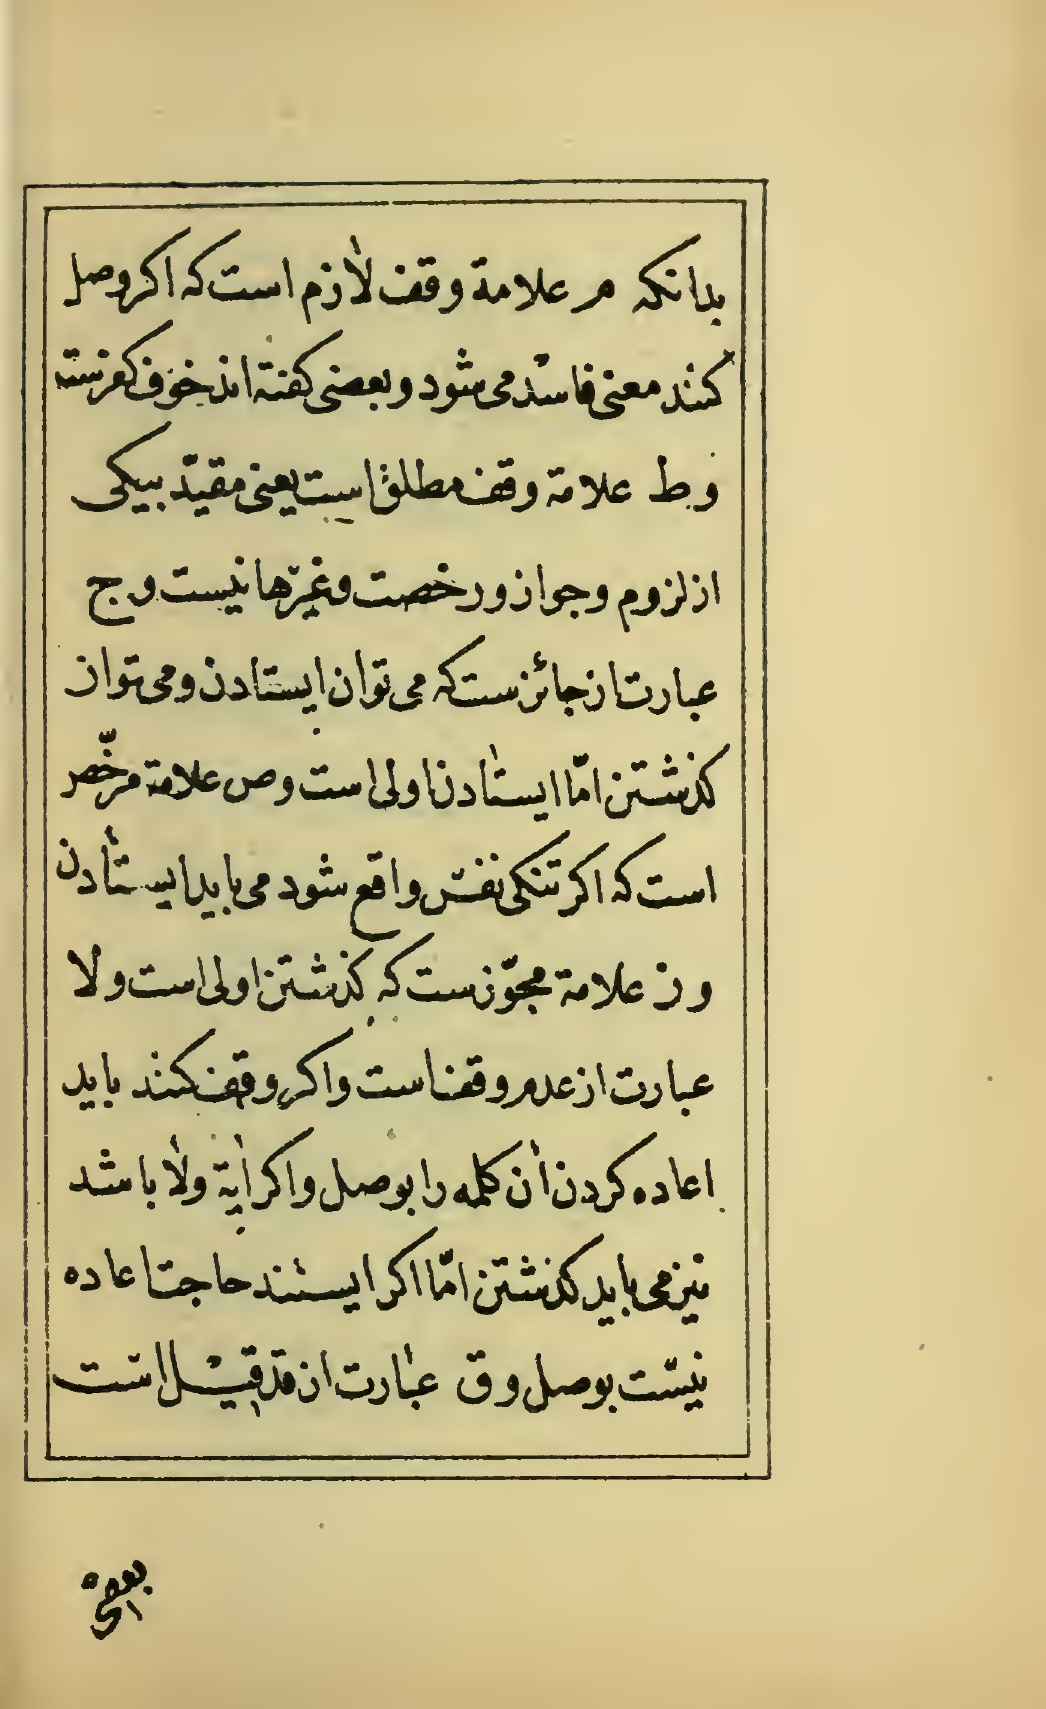 بدانکه م علامة وقف لازم است که اکر وصل
کنند معنی فاسد می شود و بعضی کفته اند خوف کفرست
و ط علامة وقف مطلق است یعنی مقیّد بیکی
از لزوم و جواز و رخصت و غیرها نیست و ج
عبارت از جائزست که می توان ایستادن و می توان
کذشتن امّا ایستادن اولی است و ص علامة مرخّص
است که اکر تنکی نفس واقع شود می باید ایستادن
و ز علامة مجوّزست که کذشتن اولی است و لا
عبارت از عدم وقف است و اکر وقف کنند باید
اعاده کردن آن کلمه را بوصل و اکر آیة و لا باشد
نیز می باید کذشتن امّا اکر ایستند حاجت اعاده
نیست بوصل و ق عبارت از قد قیل است
بعضی